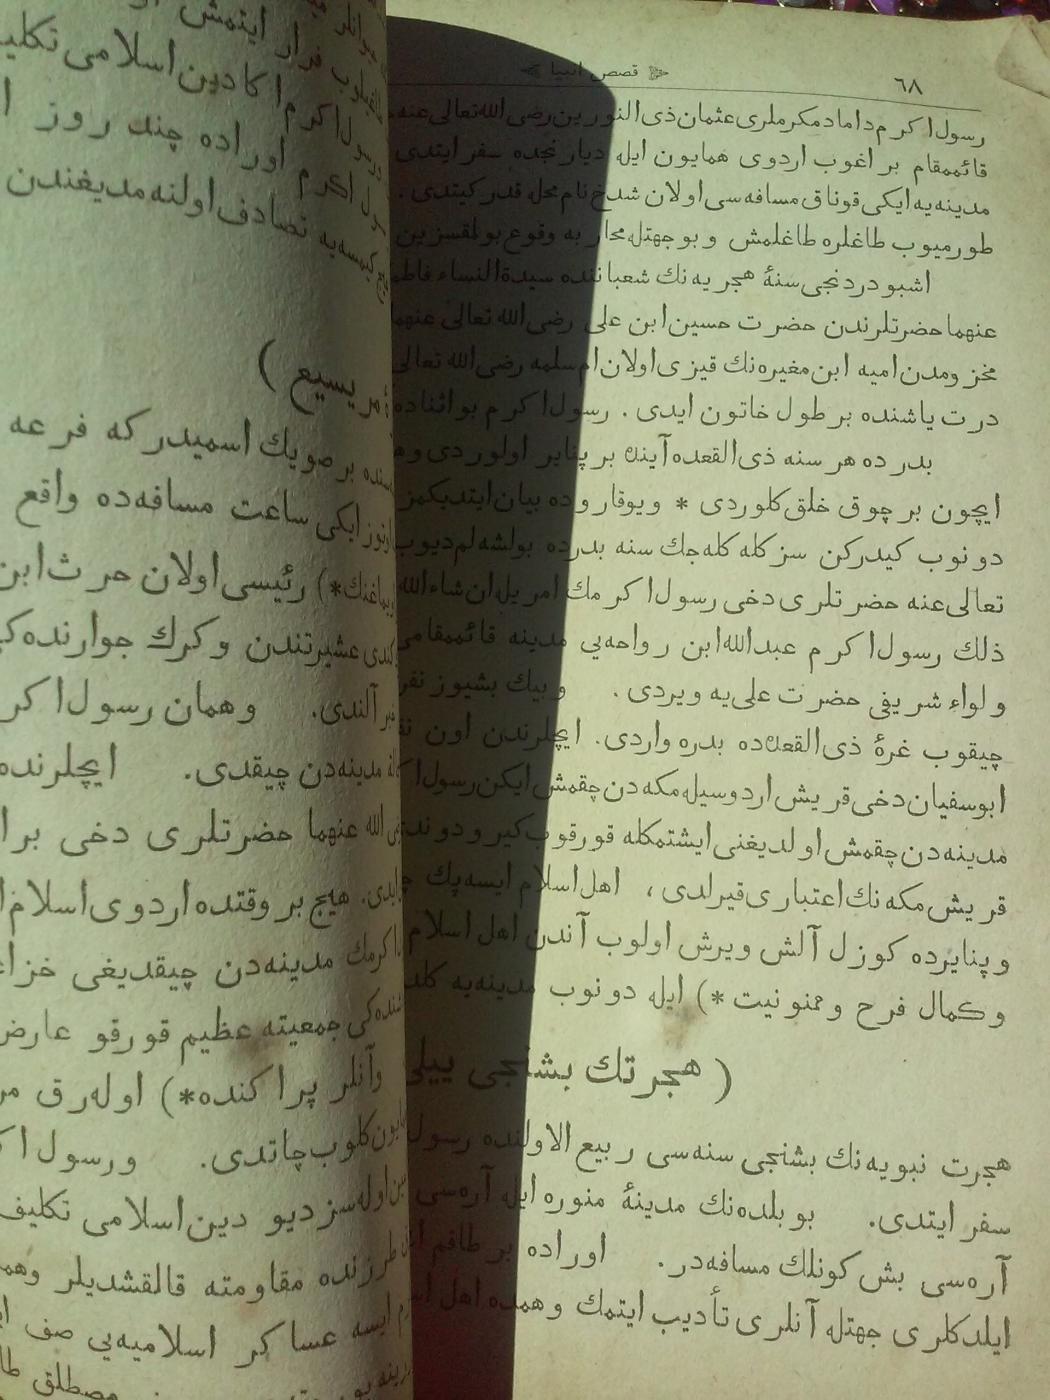 ٦٨
قصص انبیا
رسول اكرم داماد مكرملری عثمان ذی النورین رضی الله تعالی عنه
قائممقام براغوب اردوی همایون ایله دیار نجده سفر ایتدی
مدینه‌یه ایكی قوناق مسافه‌سی اولان شدخ نام محله قدر كیتدی .
طورمیوب طاغلره طاغلمش و بوجهتله محاربه وقوع بولمقسزین
اشبو دردنجی سنۀ هجریه‌نك شعباننده سیدة النساء فاطمه
عنهما حضرتلرندن حضرت حسین ابن علی رضی الله تعالی عنهما
مخزومدن امیه ابن مغیره‌نك قیزی اولان ام سلمه رضی الله تعالی
درت یاشنده بر طول خاتون ایدی . رسول اكرم بو اثناده
بدرده هر سنه ذی القعده آینده بر پنایر اولوردی و
ایچون بر چوق خلق كلوردی * ویوقاروده بیان ایتدیكمز
دونوب كیدركن سزكله كله‌جك سنه بدرده بولشه‌لم دیوب
تعالی عنه حضرتلری دخی رسول اكرمك امریله ان شاء الله
ذلك رسول اكرم عبدالله ابن رواحه‌یی مدینه قائممقامی
ولواء شریفی حضرت علی‌یه ویردی . وبیك بشیوز نفر
چیقوب غرۀ ذی القعده‌ده بدره واردی . ایچلرندن اون
ابوسفیان دخی قریش اردوسیله مكه‌دن چقمش ایكن رسول
مدینه‌دن چقمش اولدیغنی ایشتمكله قورقوب كیرو دوندی
قریش مكه‌نك اعتباری قیرلدی ، اهل اسلام ایسه پك
وپنایرده كوزل آلش ویرش اولوب آندن اهل اسلام
وكمال فرح وممنونیت *) ایله دونوب مدینه‌یه كلد
( هجرتك بشنجی ییلی
هجرت نبویه‌نك بشنجی سنه‌سی ربیع الاولنده رسول
سفر ایتدی . بو بلده‌نك مدینۀ منوره ایله آره‌سی
آره‌سی بش كونلك مسافه‌در . اوراده بر طاقم
ایلدكلری جهتله آنلری تأدیب ایتمك وهمده اهل
فرار ایتمش
اكرم آكا دین اسلامی تكلیف
اكرم اوراده چند روز
كیمسه‌یه تصادف اولنه‌مدیغندن
مریسیع )
بر صویك اسمیدركه فرعه
اوتوز ایكی ساعت مسافه‌ده واقع
*) رئیسی اولان حرث ابن
كندی عشیرتندن وكرك جوارنده‌كی
خبر آلندی . وهمان رسول اكر
مدینه‌دن چیقدی . ایچلرنده
الله عنهما حضرتلری دخی برا
هیچ بر وقتده اردوی اسلام
اكرمك مدینه‌دن چیقدیغی خزا
جمعیته عظیم قورقو عارض
وآنلر پراكنده *) اوله‌رق
كلوب چاتدی . ورسول اك
اوله‌سز دیو دین اسلامی تكلیف
طرزنده مقاومته قالقشدیلر وهم
ایسه عساكر اسلامیه‌یی صف
مصطلق